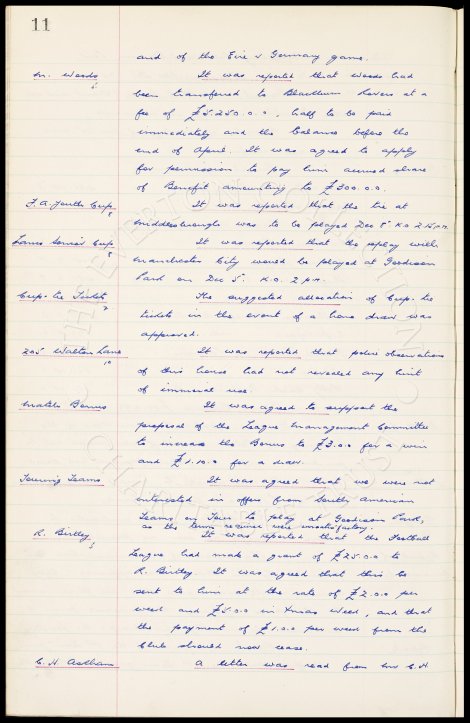 11
and of the Eire v Germany game.
M. Woods It was reported that Woods had
been transferred to Blackburn Rovers at a
fee of £5.250.0.0, half to be paid
immediately and the balance before the
end of April. It was agreed to apply
for permission to pay him accrued share
of Benefit amounting to £300.0.0.
F.A. Youth Cup It was reported that the tie at
Middlesbrough was to be played Dec 5 K.O. 2.15 p.m.
Lancs Senior Cup It was reported that the replay with
Manchester City would be played at Goodison
Park on Dec 5. K.O. 2 p.m.
Cup-tie Tickets The suggested allocation of Cup-tie
tickets in the event of a home draw was
approved.
205 Walton Lane It was reported that police observations
of this house had not revealed any hint
of immoral use.
Match Bonus It was agreed to support the
proposal of the League Management Committee
to increase the Bonus to £3.0.0 for a win
and £1.10.0 for a draw.
Touring Teams It was agreed that we were not
interested in offers from South American
Teams on Tour to play at Goodison Park,
as the terms required were unsatisfactory.
R. Birtley It was reported that the Football
League had made a grant of £25.0.0 to
R. Birtley It was agreed that this be
sent to him at the rate of £2.0.0 per
week and £5.0.0 in Xmas Week, and that
the payment of £1.0.0 per week from the
Club should now cease.
C.H. Askham A letter was read from Mr C.H